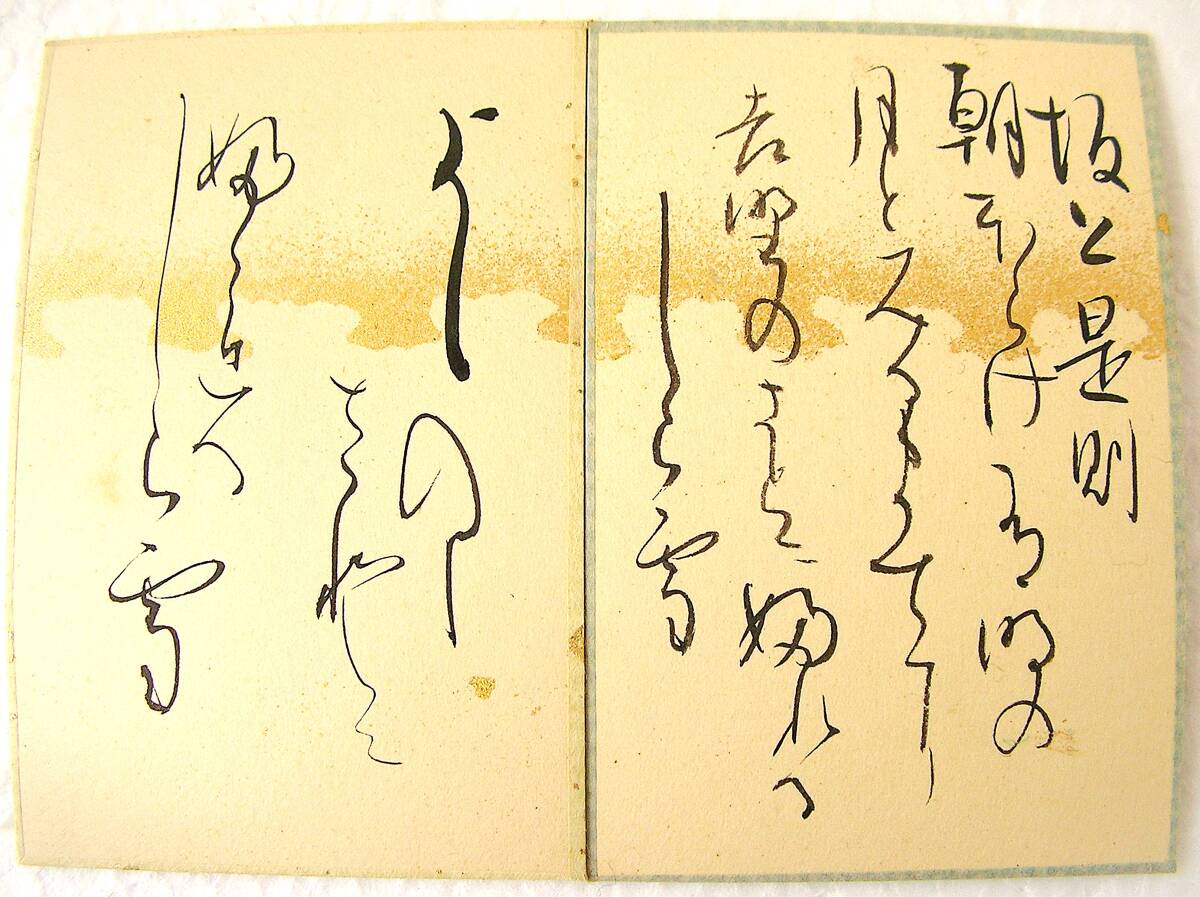 坂上是則
朝ほらけ有明の
月とみるまてに
吉野のさとにふれる
しら雪
よしのゝ
さとに
ふれる
しら雪